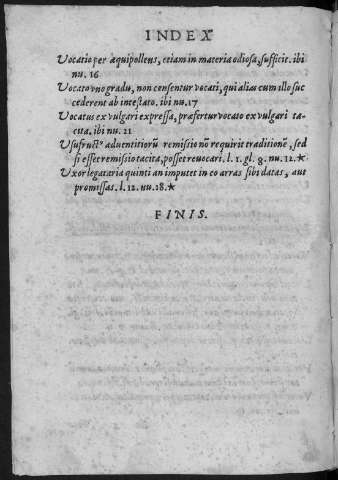 INDEX
Vocatio per æquipollens, etiam in materia odiosa, sufficit. ibi
nu. 16
Vocato vno gradu, non censentur vocati, qui aliàs cum illo suc
cederent ab intestato. ibi nu. 17
Vocatus ex vulgari expressa, præfertur vocato ex vulgari ta-
cita. ibi nu. 21
Vsufructꝰ aduentitiorũ remissio nõ requirit traditionẽ, sed
si esset remissio tacita, posset reuocari. l. 1. gl. 8. nu. 12. *
Vxor legataria quinti an imputet in eo arras sibi datas, aut
promissas. l. 12. nu. 18. *
FINIS.